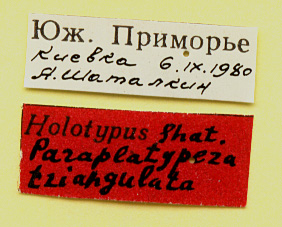 Юж. Приморье
Киевка 6.IX.1980
А. Шаталкин
Holotypus Shat.
Paraplatypeza
triangulata